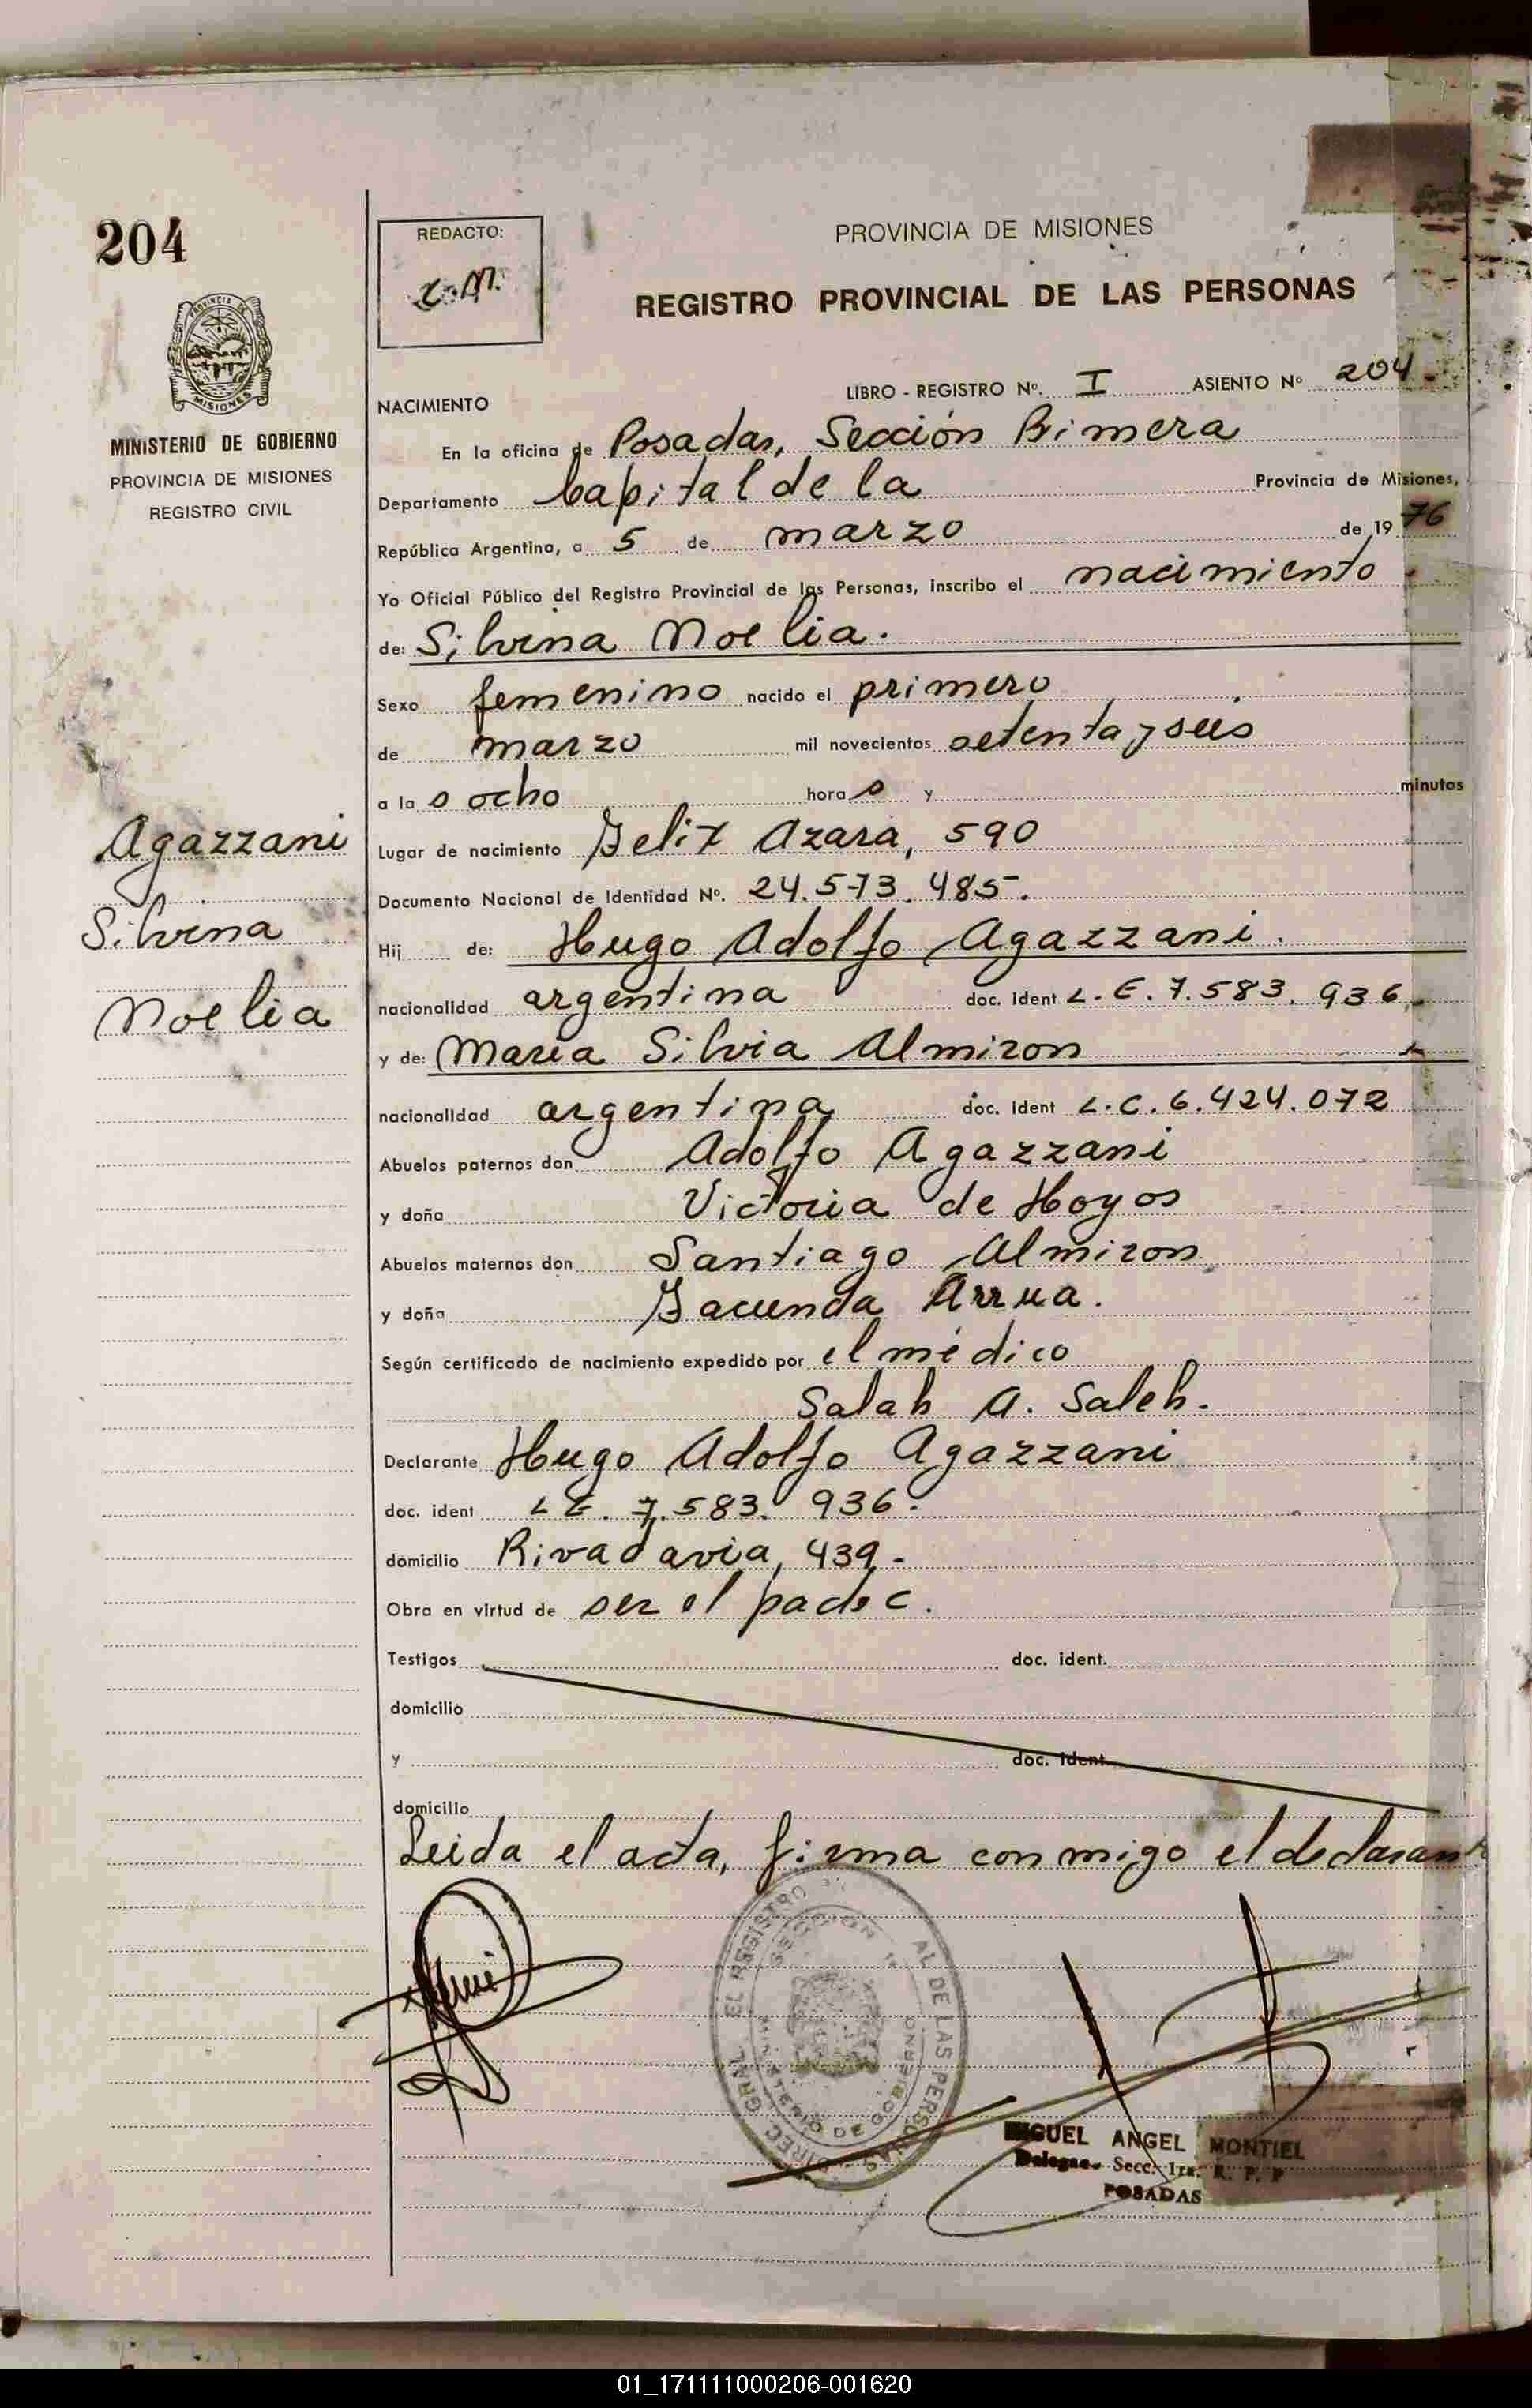 204
REDACTO:
PROVINCIA DE MISIONES
REGISTRO PROVINCIAL DE LAS PERSONAS
PROVINCIA DE
MISIONES
MINISTERIO DE GOBIERNO
PROVINCIA DE MISIONES
REGISTRO CIVIL
NACIMIENTO
LIBRO - REGISTRO Nº. I ASIENTO Nº 204.
En la oficina de Posadas, Sección Primera
Departamento Capital de la Provincia de Misiones,
República Argentina, a 5 de marzo de 1976
Yo Oficial Público del Registro Provincial de las Personas, inscribo el nacimiento
de: Silvina Noelia.
Sexo femenino nacido el primero
de marzo mil novecientos setenta y seis
a la s ocho hora s y minutos
Agazzani
Silvina
Noelia
Lugar de nacimiento Felix Azara, 590
Documento Nacional de Identidad Nº. 24.573.485.
Hij de: Hugo Adolfo Agazzani.
nacionalidad argentina doc. ident L.E. 7.583.936.
y de: Maria Silvia Almiron
nacionalidad argentina doc. ident L.C. 6.424.072
Abuelos paternos don Adolfo Agazzani
y doña Victoria de Hoyos
Abuelos maternos don Santiago Almiron
y doña Facunda Arrua.
Según certificado de nacimiento expedido por el médico
Salah A. Saleh.
Declarante Hugo Adolfo Agazzani
doc. ident L E. 7.583.936.
domicilio Rivadavia, 439.-
Obra en virtud de ser el padre.
Testigos doc. ident.
domicilio
y doc. ident.
domicilio
Leida el acta, firma conmigo el declarant
SECCION 1ª
MINISTERIO DE GOBIERNO
MIGUEL ANGEL MONTIEL
Delegado Secc. 1ra. R. P. P
POSADAS
01_171111000206-001620